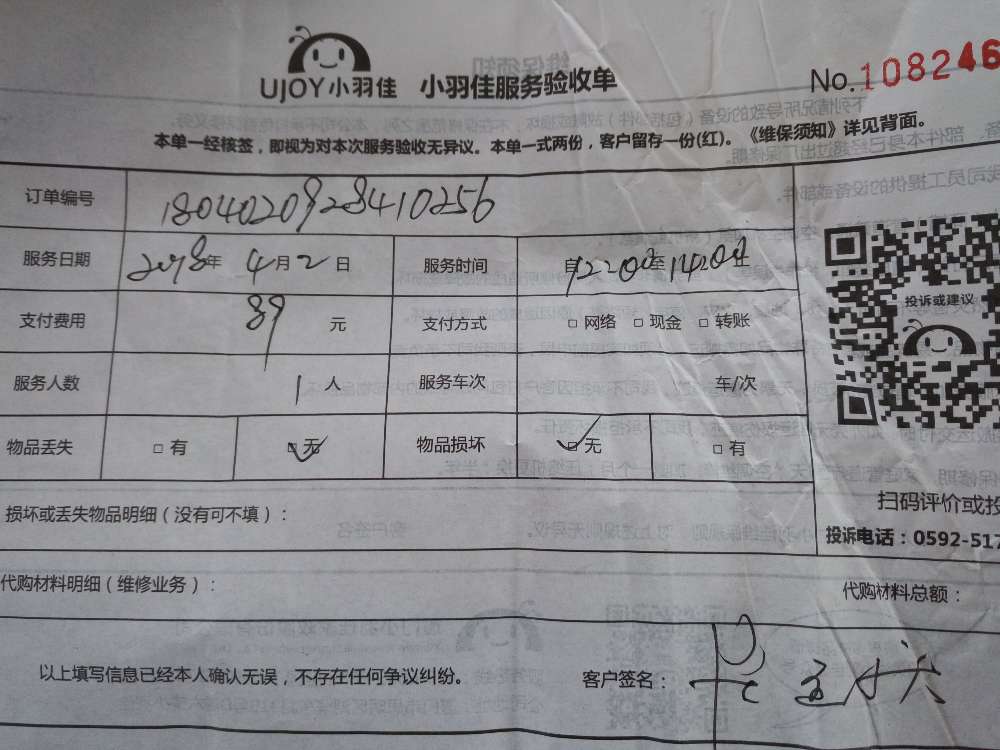 UJOY小羽佳 小羽佳服务验收单 No.108246
本单一经核签，即视为对本次服务验收无异议。本单一式两份，客户留存一份(红)。《维保须知》详见背面。
订单编号 1804020928410256
服务日期 2018年 4月2日 服务时间 自1220至1420止
支付费用 89 元 支付方式 □ 网络 □ 现金 □ 转账
服务人数 1 人 服务车次 车/次
物品丢失 □ 有 □ 无 物品损坏 □ 无 □ 有
投诉或建议
损坏或丢失物品明细（没有可不填）：
扫码评价或投
投诉电话：0592-517
代购材料明细（维修业务）： 代购材料总额：
以上填写信息已经本人确认无误，不存在任何争议纠纷。 客户签名：